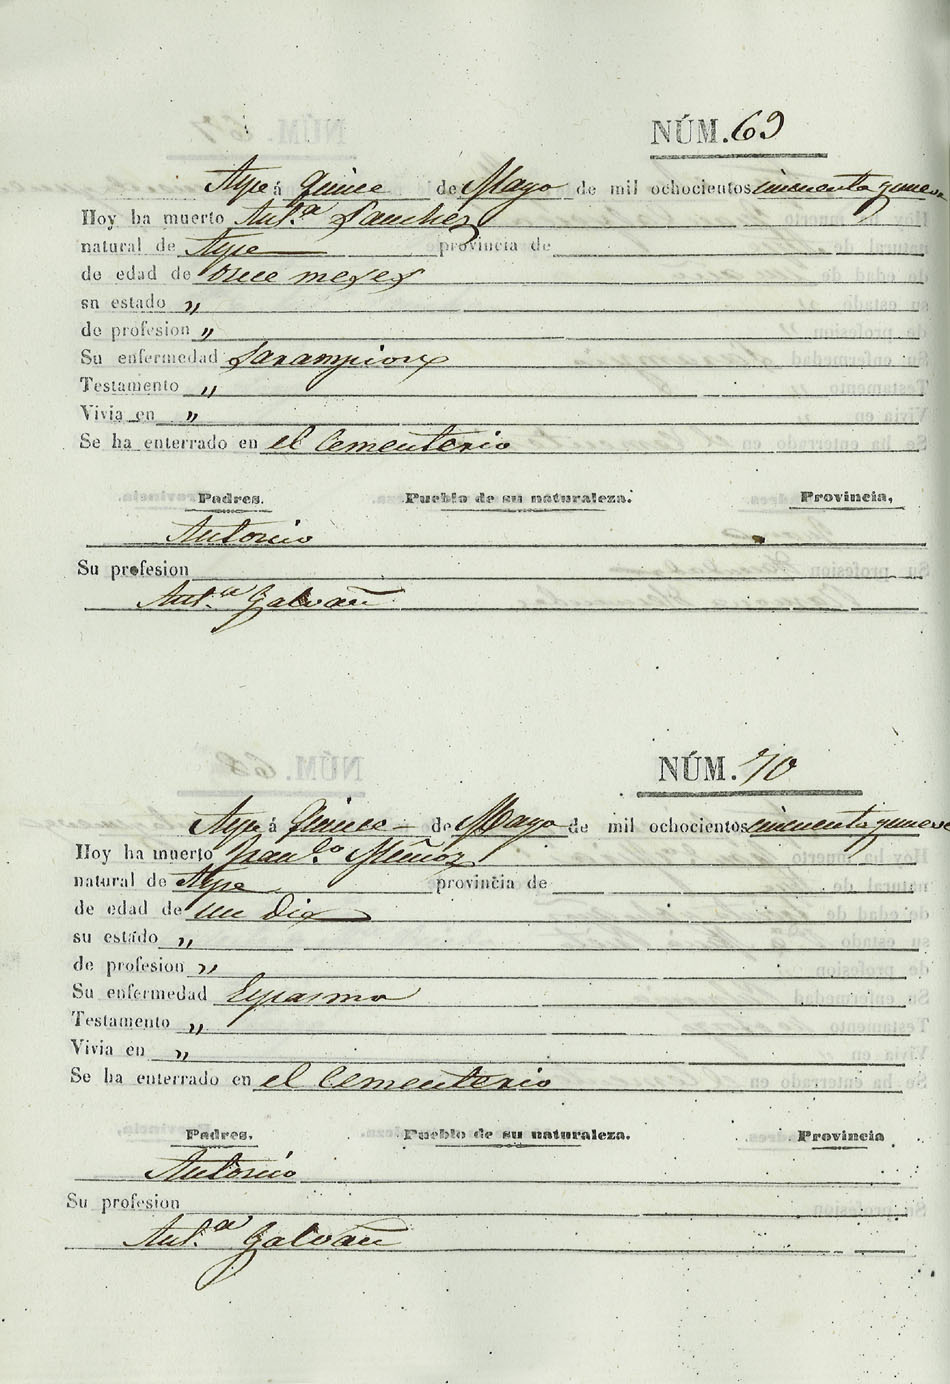 NÚM. 69
Aspe á Quince de Mayo de mil ochocientos cincuenta y nueve
Hoy ha muerto Ant.ª Sanchez
natural de Aspe provincia de
de edad de once meses
su estado „
de profesion „
Su enfermedad Sarampion
Testamento „
Vivia en „
Se ha enterrado en el Cementerio
Padres. Pueblo de su naturaleza. Provincia,
Antonio
Su profesion
Ant.ª Galvañ
NÚM. 70
Aspe á Quince de Mayo de mil ochocientos cincuenta y nueve
Hoy ha muerto Fran.co Muñoz
natural de Aspe provincia de
de edad de un dia
su estado „
de profesion „
Su enfermedad Espasmo
Testamento „
Vivia en „
Se ha enterrado en el Cementerio
Padres. Pueblo de su naturaleza. Provincia
Antonio
Su profesion
Ant.ª Galvañ